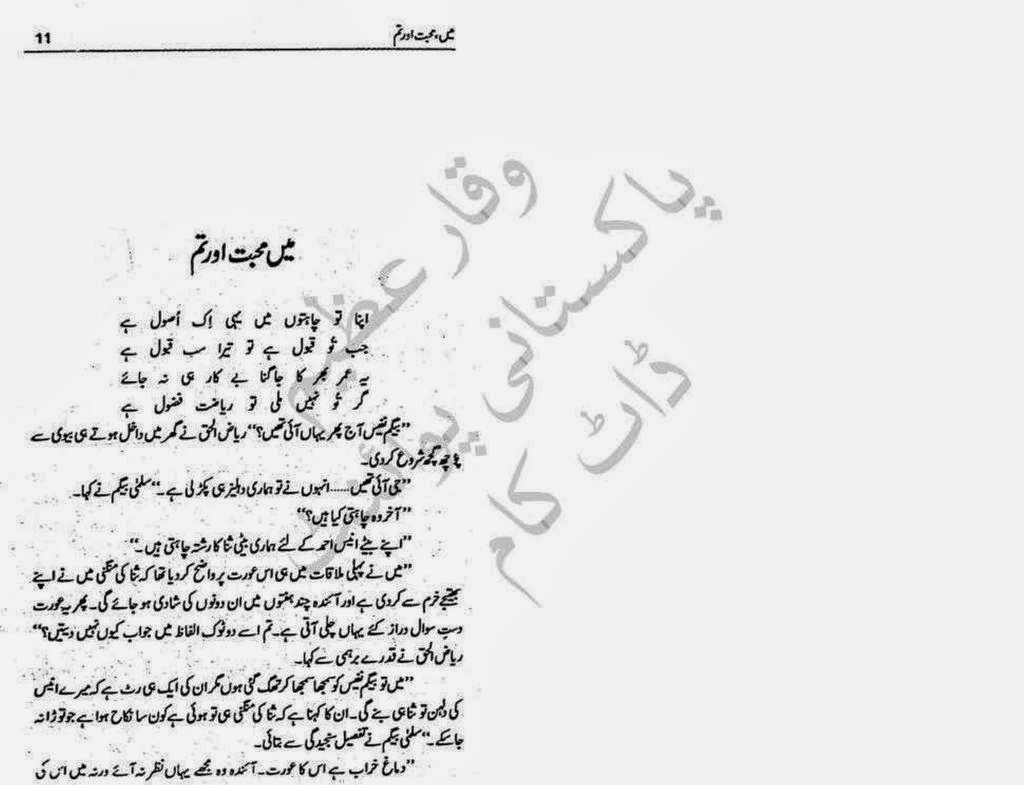 میں، محبت اور تم
11
میں محبت اور تم
اپنا تو چاہتوں میں یہی اِک اُصول ہے
جب تُو قبول ہے تو تیرا سب قبول ہے
یہ عمر بھر کا جاگنا بے کار ہی نہ جائے
گر تُو نہیں ملی تو ریاضت فضول ہے
”بیگم نفیس آج پھر یہاں آئی تھیں؟“ ریاض الحق نے گھر میں داخل ہوتے ہی بیوی سے
پوچھ گچھ شروع کر دی۔
”جی آئی تھیں......انہوں نے تو ہماری دہلیز ہی پکڑ لی ہے۔“ سلمٰی بیگم نے کہا۔
”آخر وہ چاہتی کیا ہیں؟“
”اپنے بیٹے انیس احمد کے لئے ہماری بیٹی ثنا کا رشتہ چاہتی ہیں۔“
”میں نے پہلی ملاقات میں ہی اس عورت پر واضح کر دیا تھا کہ ثنا کی منگنی میں نے اپنے
بھتیجے خرم سے کر دی ہے اور آئندہ چند ہفتوں میں ان دونوں کی شادی ہو جائے گی۔ پھر یہ عورت
دستِ سوال دراز کئے یہاں چلی آتی ہے۔ تم اسے دو ٹوک الفاظ میں جواب کیوں نہیں دیتیں؟“
ریاض الحق نے قدرے برہمی سے کہا۔
”میں تو بیگم نفیس کو سمجھا سمجھا کر تھک گئی ہوں مگر ان کی ایک ہی رٹ ہے کہ میرے انیس
کی دلہن تو ثنا ہی بنے گی۔ ان کا کہنا ہے کہ ثنا کی منگنی ہی تو ہوئی ہے کون سا نکاح ہوا ہے جو توڑا نہ
جا سکے۔“ سلمٰی بیگم نے تفصیل سنجیدگی سے بتائی۔
”دماغ خراب ہے اس کا عورت۔ آئندہ وہ مجھے یہاں نظر نہ آئے ورنہ میں اس کی
وقار عظیم
پاکستانی پوائنٹ
ڈاٹ کام